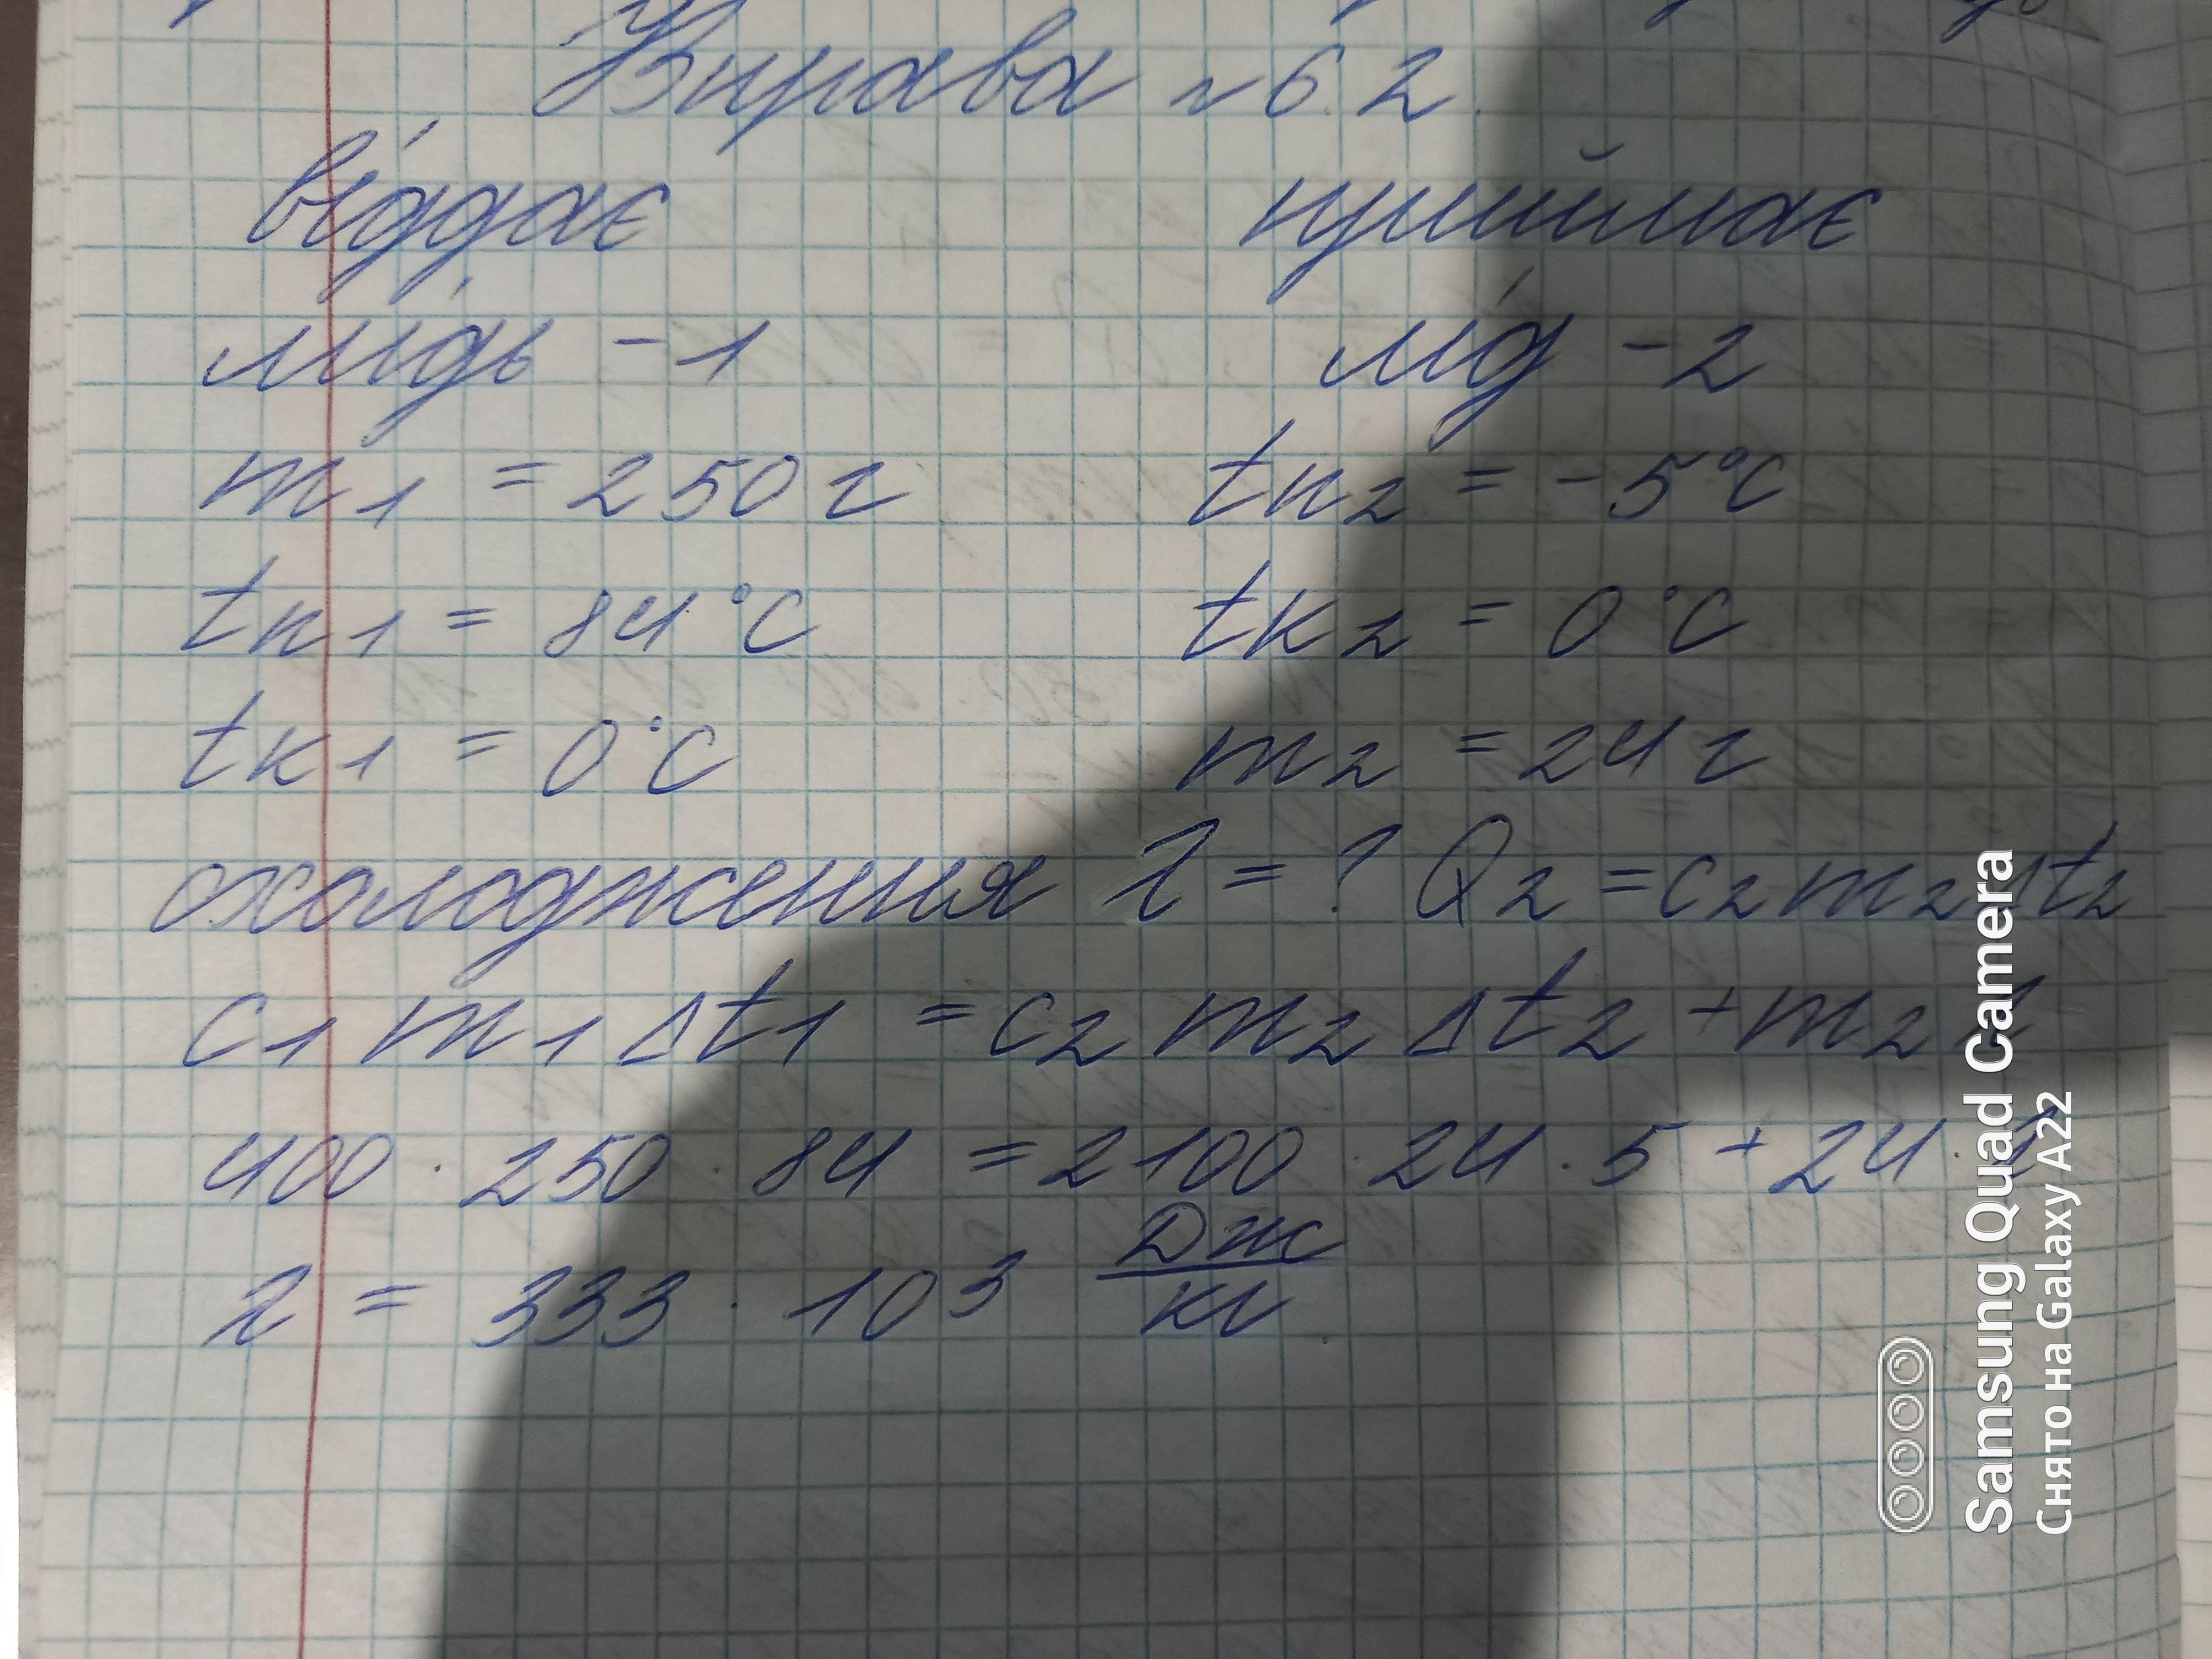 Вправа № 6.2.
віддає приймає
мідь - 1 лід - 2
m1 = 250 г tn2 = -5°C
tn1 = 84°C tк2 = 0°C
tк1 = 0°C m2 = 24 г
охолодження λ = ? Q2 = c2 m2 Δt2
c1 m1 Δt1 = c2 m2 Δt2 + m2 λ
400 · 250 · 84 = 2100 · 24 · 5 + 24 · λ
λ = 333 · 10³ Дж/кг
Samsung Quad Camera
Снято на Galaxy A22